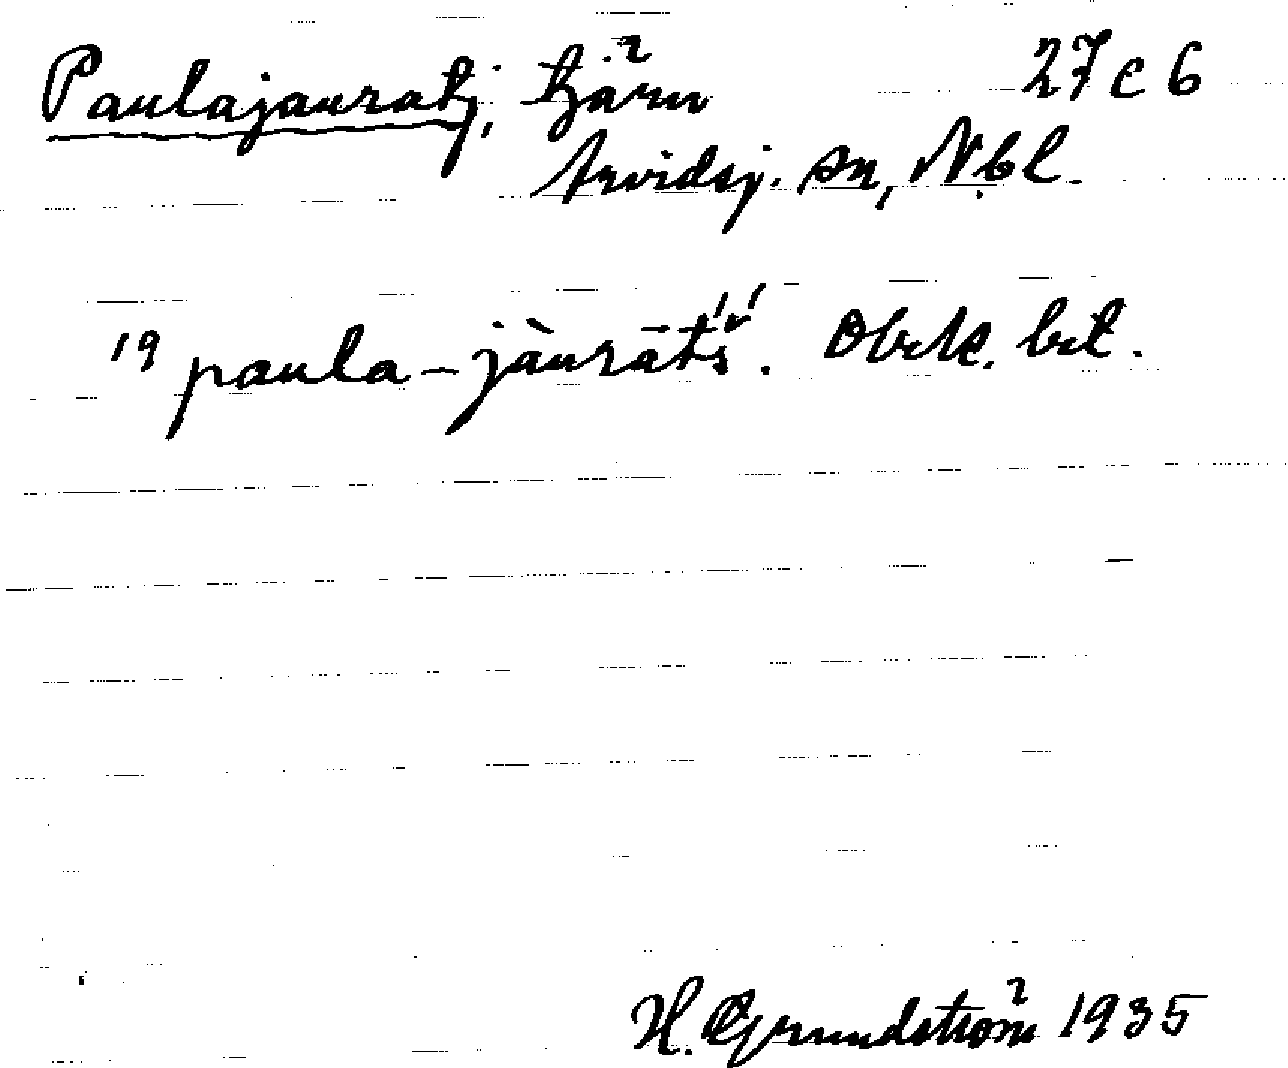 Paulajauratj, tjärn 27 c 6
Arvidsj. sn, Nbl.
19 paula-jàurātš́. Obek. bet.
H. Grundström 1935